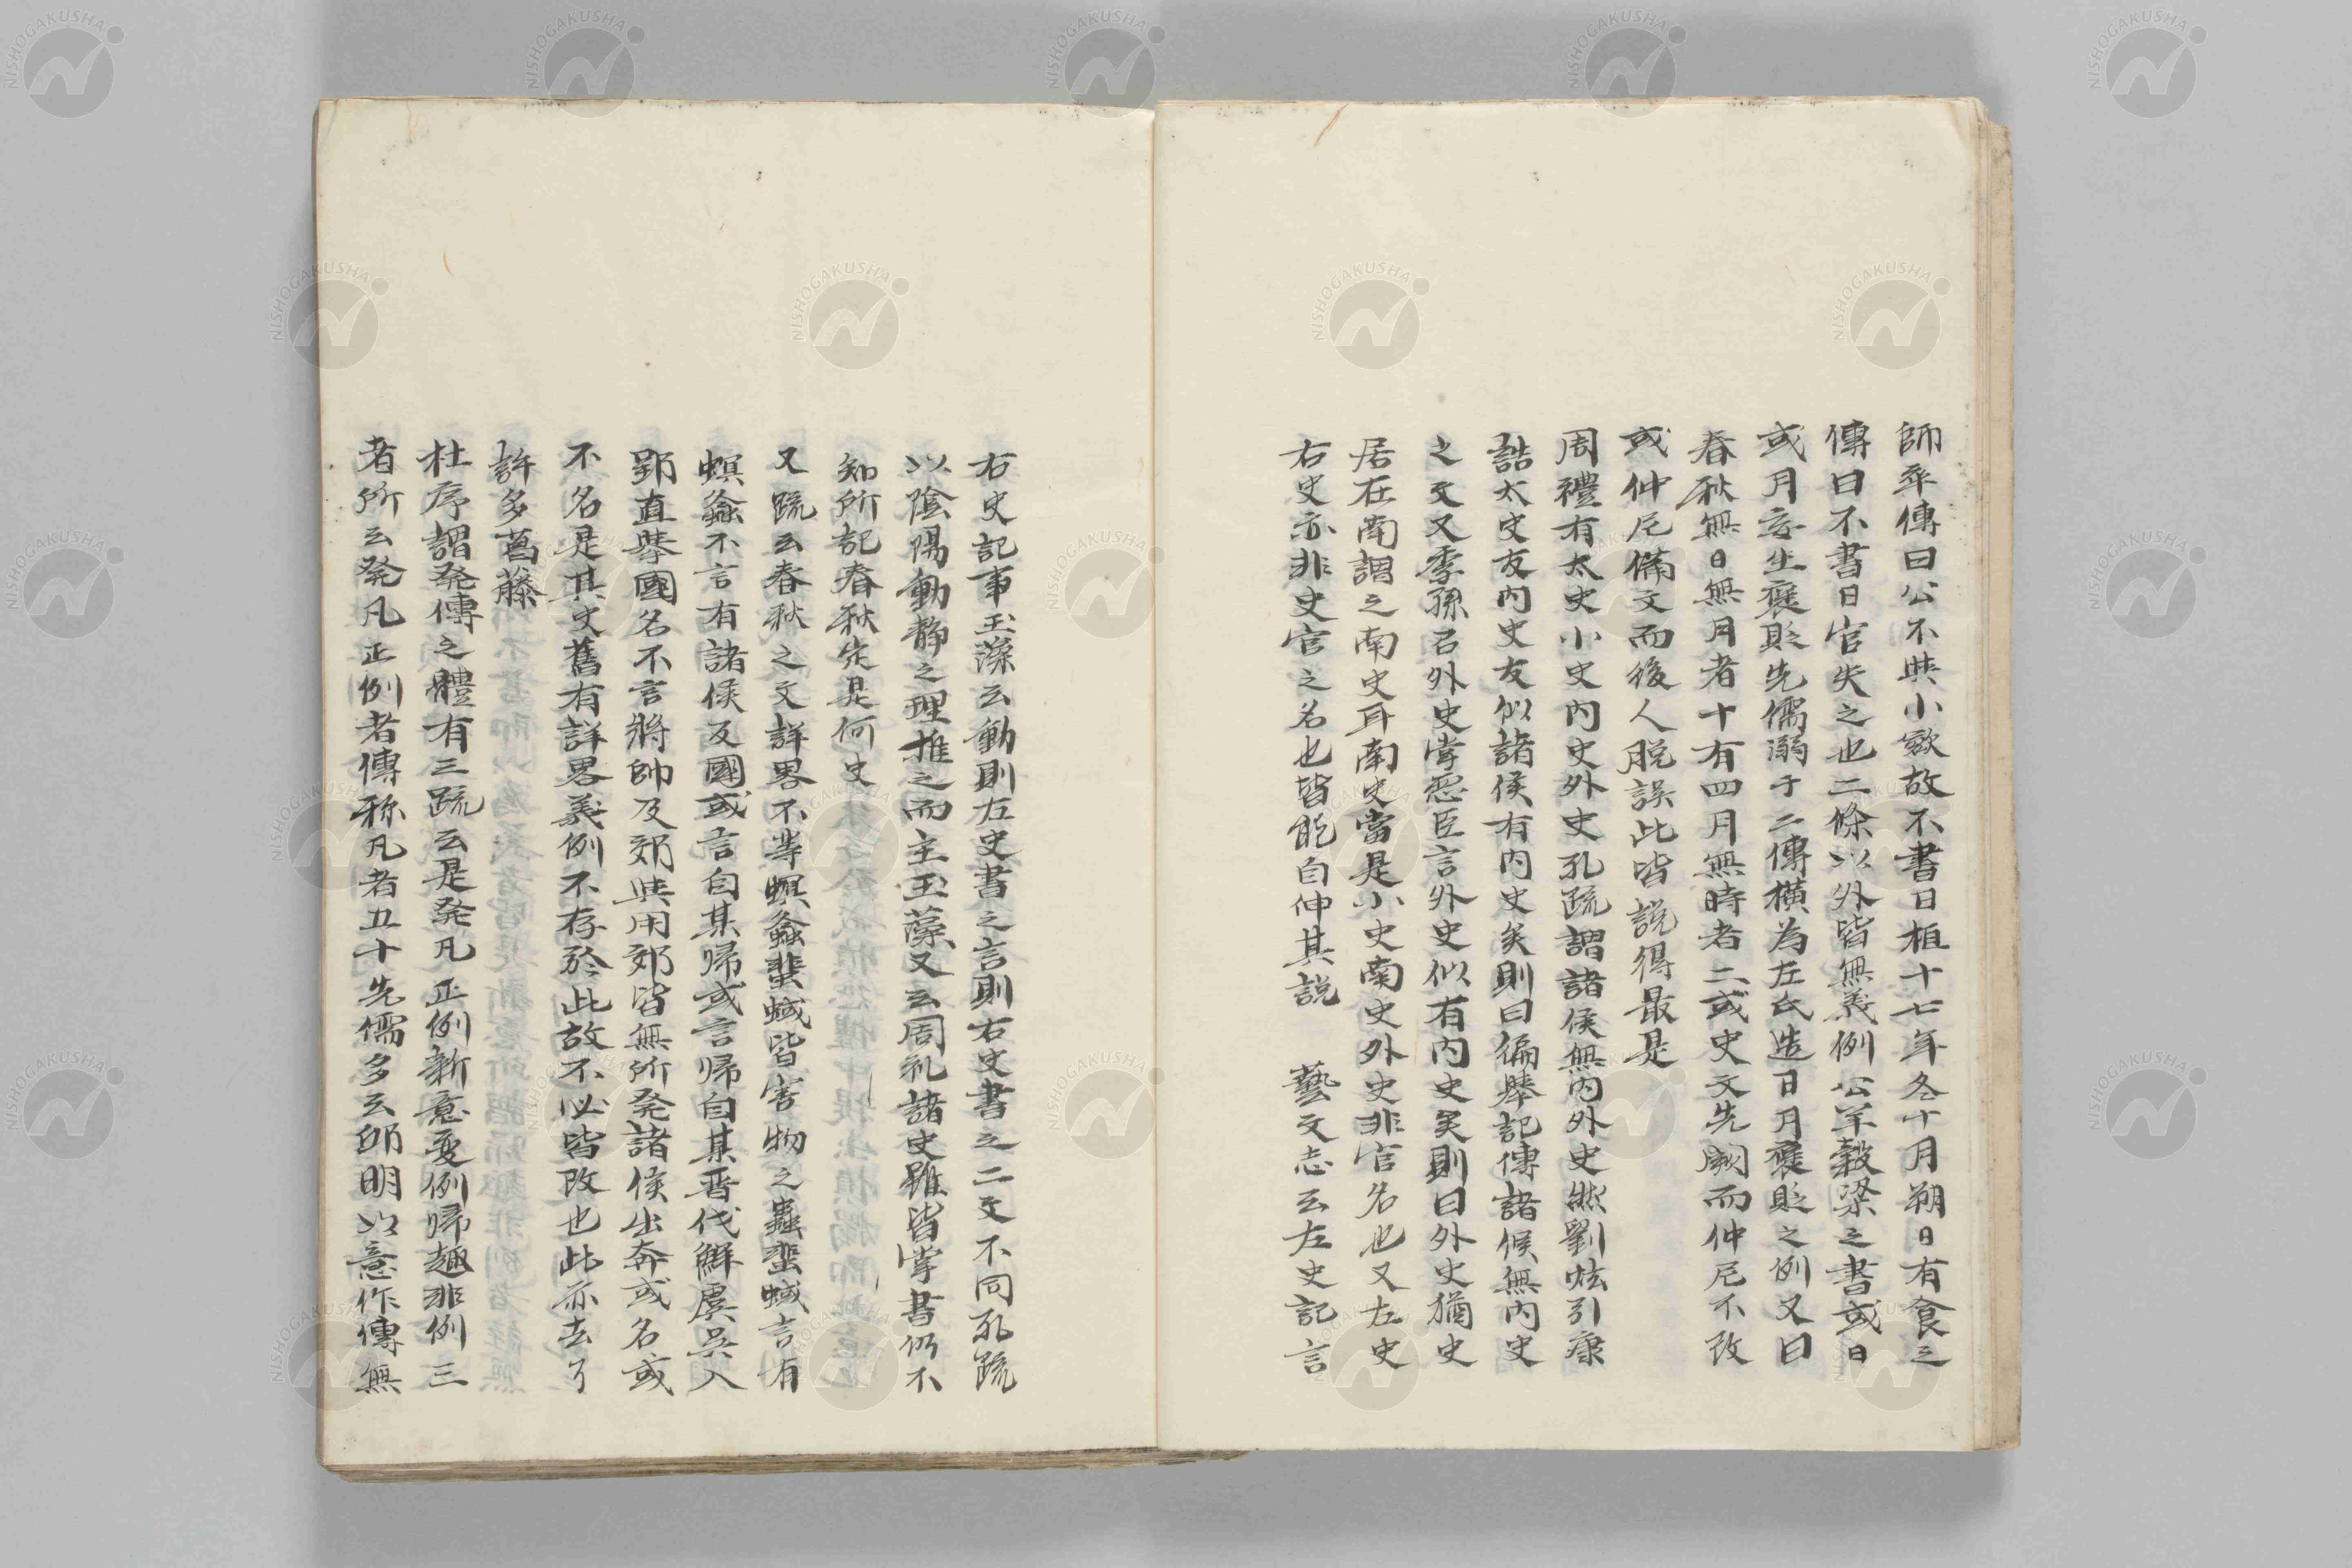 師卒傳曰公不與小斂故不書日桓十七年冬十月朔日有食之
傳曰不書日官失之也二條以外皆無義例公羊穀梁之書或日
或月妄生褒貶先儒溺于二傳横為左氏造日月褒貶之例又曰
春秋無日無月者十有四月無時者二或史文先闕而仲尼不改
或仲尼備文而後人脱誤此皆説得最是
周禮有太史小史内史外史孔疏謂諸侯無内外史然劉炫引康
誥太史友内史友似諸侯有内史矣則曰徧舉記傳諸侯無内史
之文又季孫召外史掌惡臣言外史似有内史矣則曰外史猶史
居在南謂之南史耳南史當是小史南史外史非官名也又左史
右史亦非史官之名也皆能自伸其説 藝文志云左史記言
右史記事玉藻云動則左史書之言則右史書之二文不同孔疏
以陰陽動静之理推之而主玉藻又云周礼諸史雖皆掌書仍不
知所記春秋定是何史
又疏云春秋之文詳畧不等螟螽蜚蜮皆害物之蟲蜚蜮言有
螟螽不言有諸侯反國或言自某歸或言歸自某晋伐鮮虞吳入
郢直舉國名不言將帥及郊與用郊皆無所発諸侯出奔或名或
不名是其史舊有詳畧義例不存於此故不必皆改也此亦去了
許多葛藤
杜序謂発傳之體有三疏云是発凡正例新意変例歸趣非例三
者所云発凡正例者傳称凡者五十先儒多云邱明以意作傳無
NISHOGAKUSHA